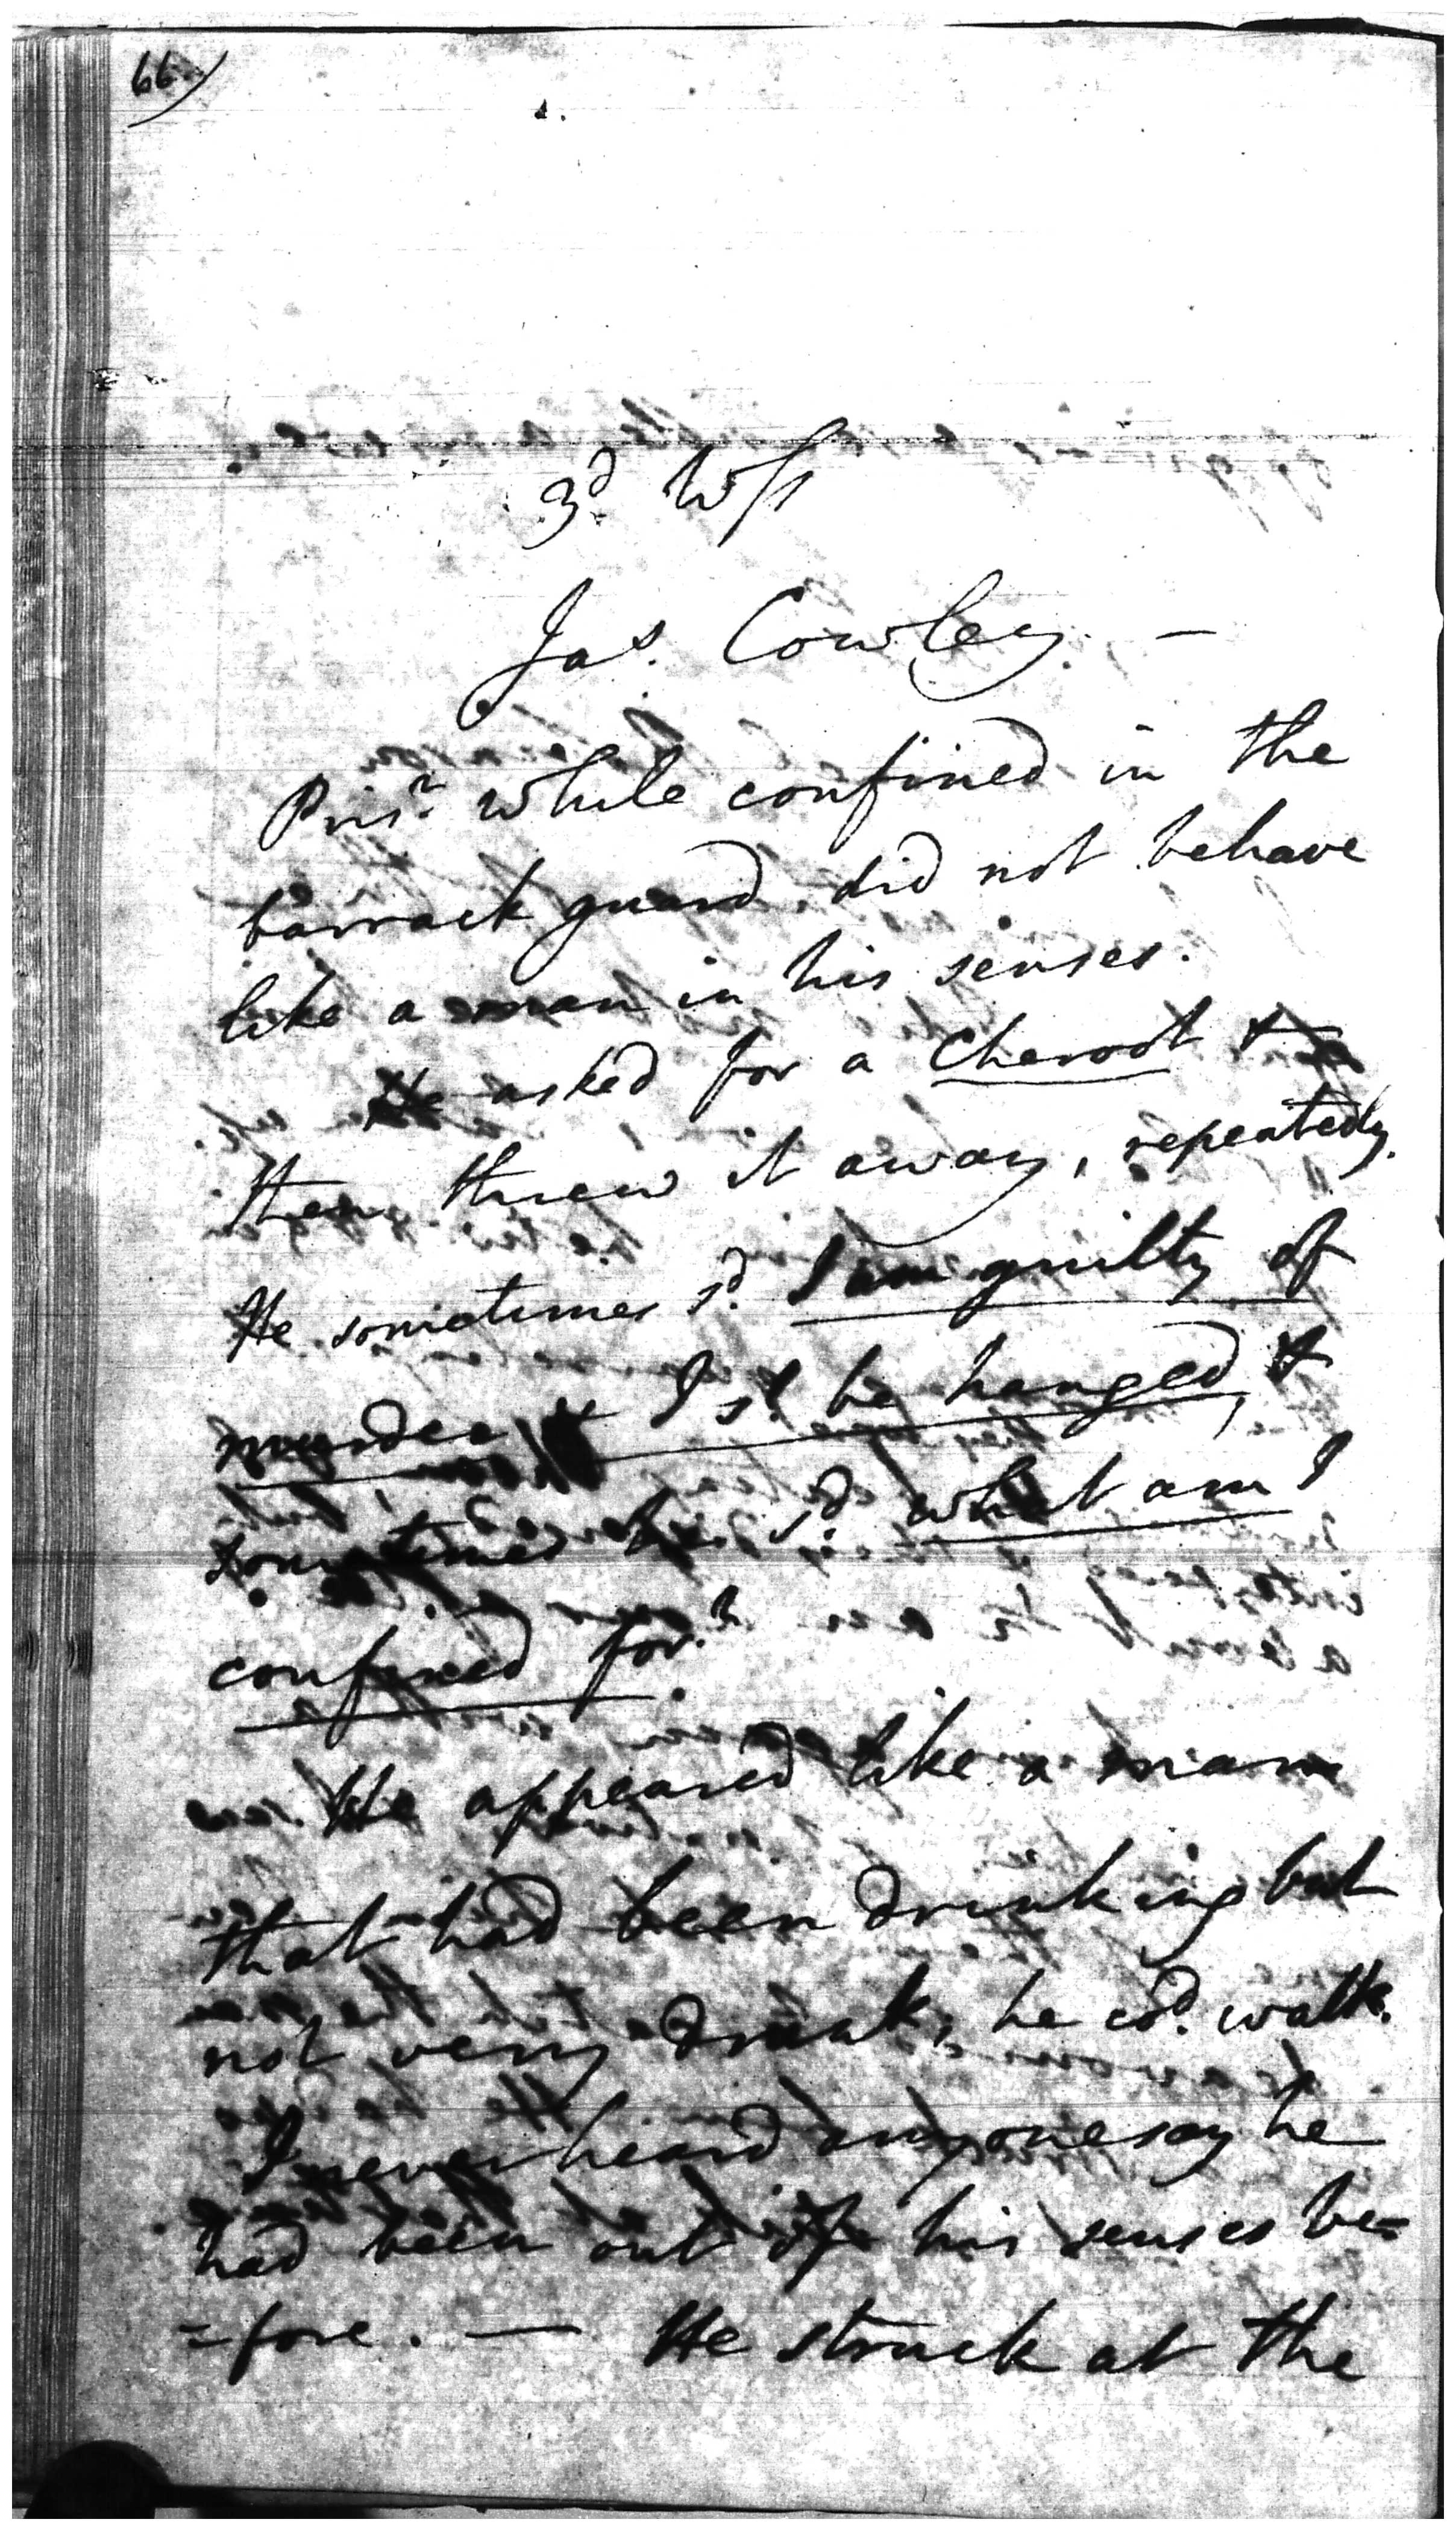 66)
3d. Wss
Jas. Cowley. —
Prisr. while confined in the
barrack guard did not behave
like a man in his senses.
He asked for a Cheroot &
then threw it away, repeatedly.
He sometimes sd. I am guilty of
murder & I sd. be hanged, &
sometimes he sd. what am I
confined for?
He appeared like a man
that had been drinking but
not very drunk, he cd. walk.
I never heard any one say he
had been out of his senses be=
=fore. — He struck at the